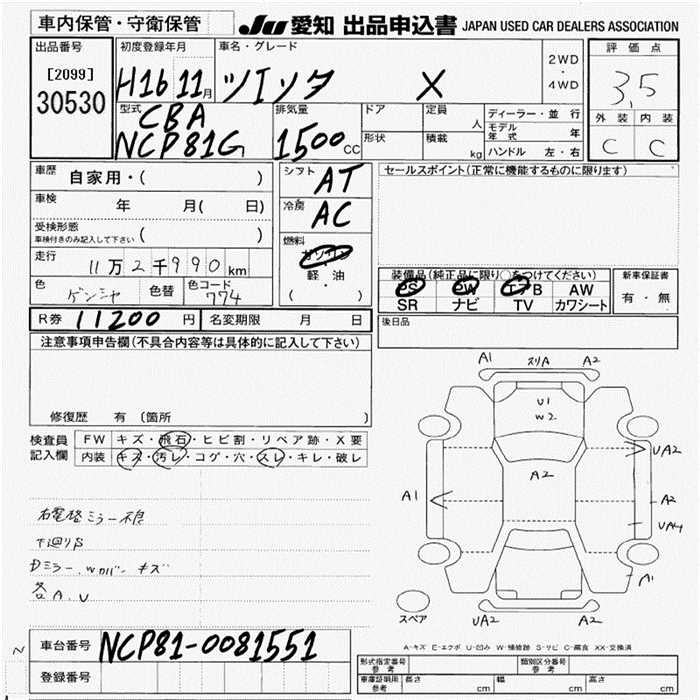 車内保管・守衛保管
JU 愛知 出品申込書 JAPAN USED CAR DEALERS ASSOCIATION
出品番号
[2099]
30530
初度登録年月
H16 11月
車名・グレード
X
2WD
・
4WD
評価点
3.5
外装 内装
C C
型式
CBA
NCP81G
排気量
1500cc
ドア
定員
人
形状
積載
kg
ディーラー・並行
モデル年式 年
ハンドル 左・右
車歴
自家用・( )
車検
年 月( 日)
受検形態
車検付きのみ記入して下さい ( )
走行
11万2千990km
色
色替
色コード
774
シフト
AT
冷房
AC
燃料
ガソリン
・
軽油
( ・ )
セールスポイント(正常に機能するものに限ります)
装備品(純正品に限り○をつけてください)
PS PW エアB AW
SR ナビ TV カワシート
新車保証書
有・無
後日品
R券 11200円
名変期限 月 日
注意事項申告欄(不具合内容等は具体的に記入して下さい)
修復歴 有 〔箇所 〕
検査員
記入欄
FW キズ・飛石・ヒビ割・リペア跡・X要
内装 キズ・汚レ・コゲ・穴・スレ・キレ・破レ
下廻りS
各A、U
A1 スリA A2
U1
W2
UA2
A2
A1
A2
UA4
A1
スペア
UA2 A2
A-キズ E-エクボ U-凹み W-補修跡 S-サビ C-腐食 XX-交換済
車台番号 NCP81-0081551
登録番号
形式指定番号
参考
類別区分番号
参考
車庫証明用
参考
長さ cm
幅 cm
高さ cm